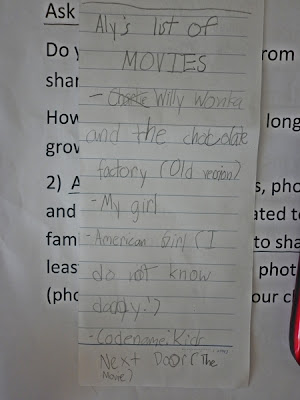 Ask
Do y
shar
How
grow
2) A
and
fam
leas
(pho
Aly's list of
MOVIES
- Willy Wonka
and the chocolate
factory (Old version)
- My girl
- American Girl (I
do not know
daddy!)
- Codename: Kids
Next Door (The
Movie)
rom
long
s, pho
ated to
to sha
phot
our c